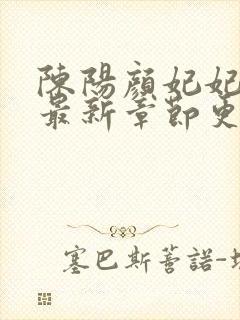 陳陽顏妃妃
最新章節更
塞巴斯蒂諾-埃